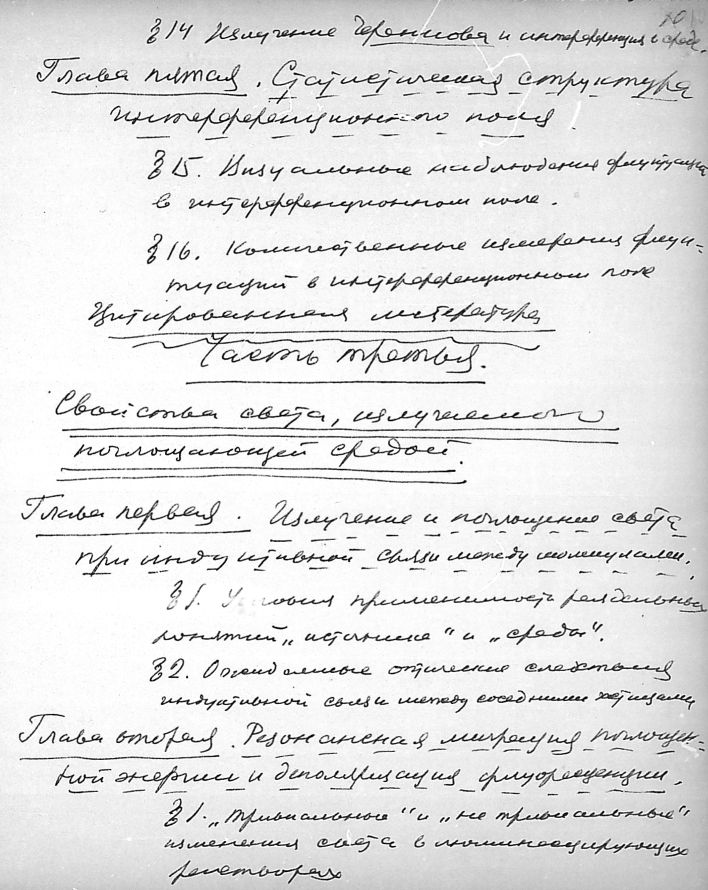 10
§14 Излучение Черенкова и интерференция в среде.
Глава пятая. Статистическая структура
интерференционного поля.
§15. Визуальные наблюдения флуктуаций
в интерференционном поле.
§16. Количественные измерения флук-
туаций в интерференционном поле
Цитированная литература
Часть третья.
Свойства света, излучаемого
поглощающей средой.
Глава первая. Излучение и поглощение света
при индуктивной связи между молекулами.
§1. Условия применимости раздельных
понятий „источника“ и „среды“.
§2. Ожидаемые оптические следствия
индуктивной связи между соседними частицами
Глава вторая. Резонансная миграция поглощен-
ной энергии и деполяризация флуоресценции.
§1. „Тривиальные“ и „не тривиальные“
изменения света в люминесцирующих
растворах